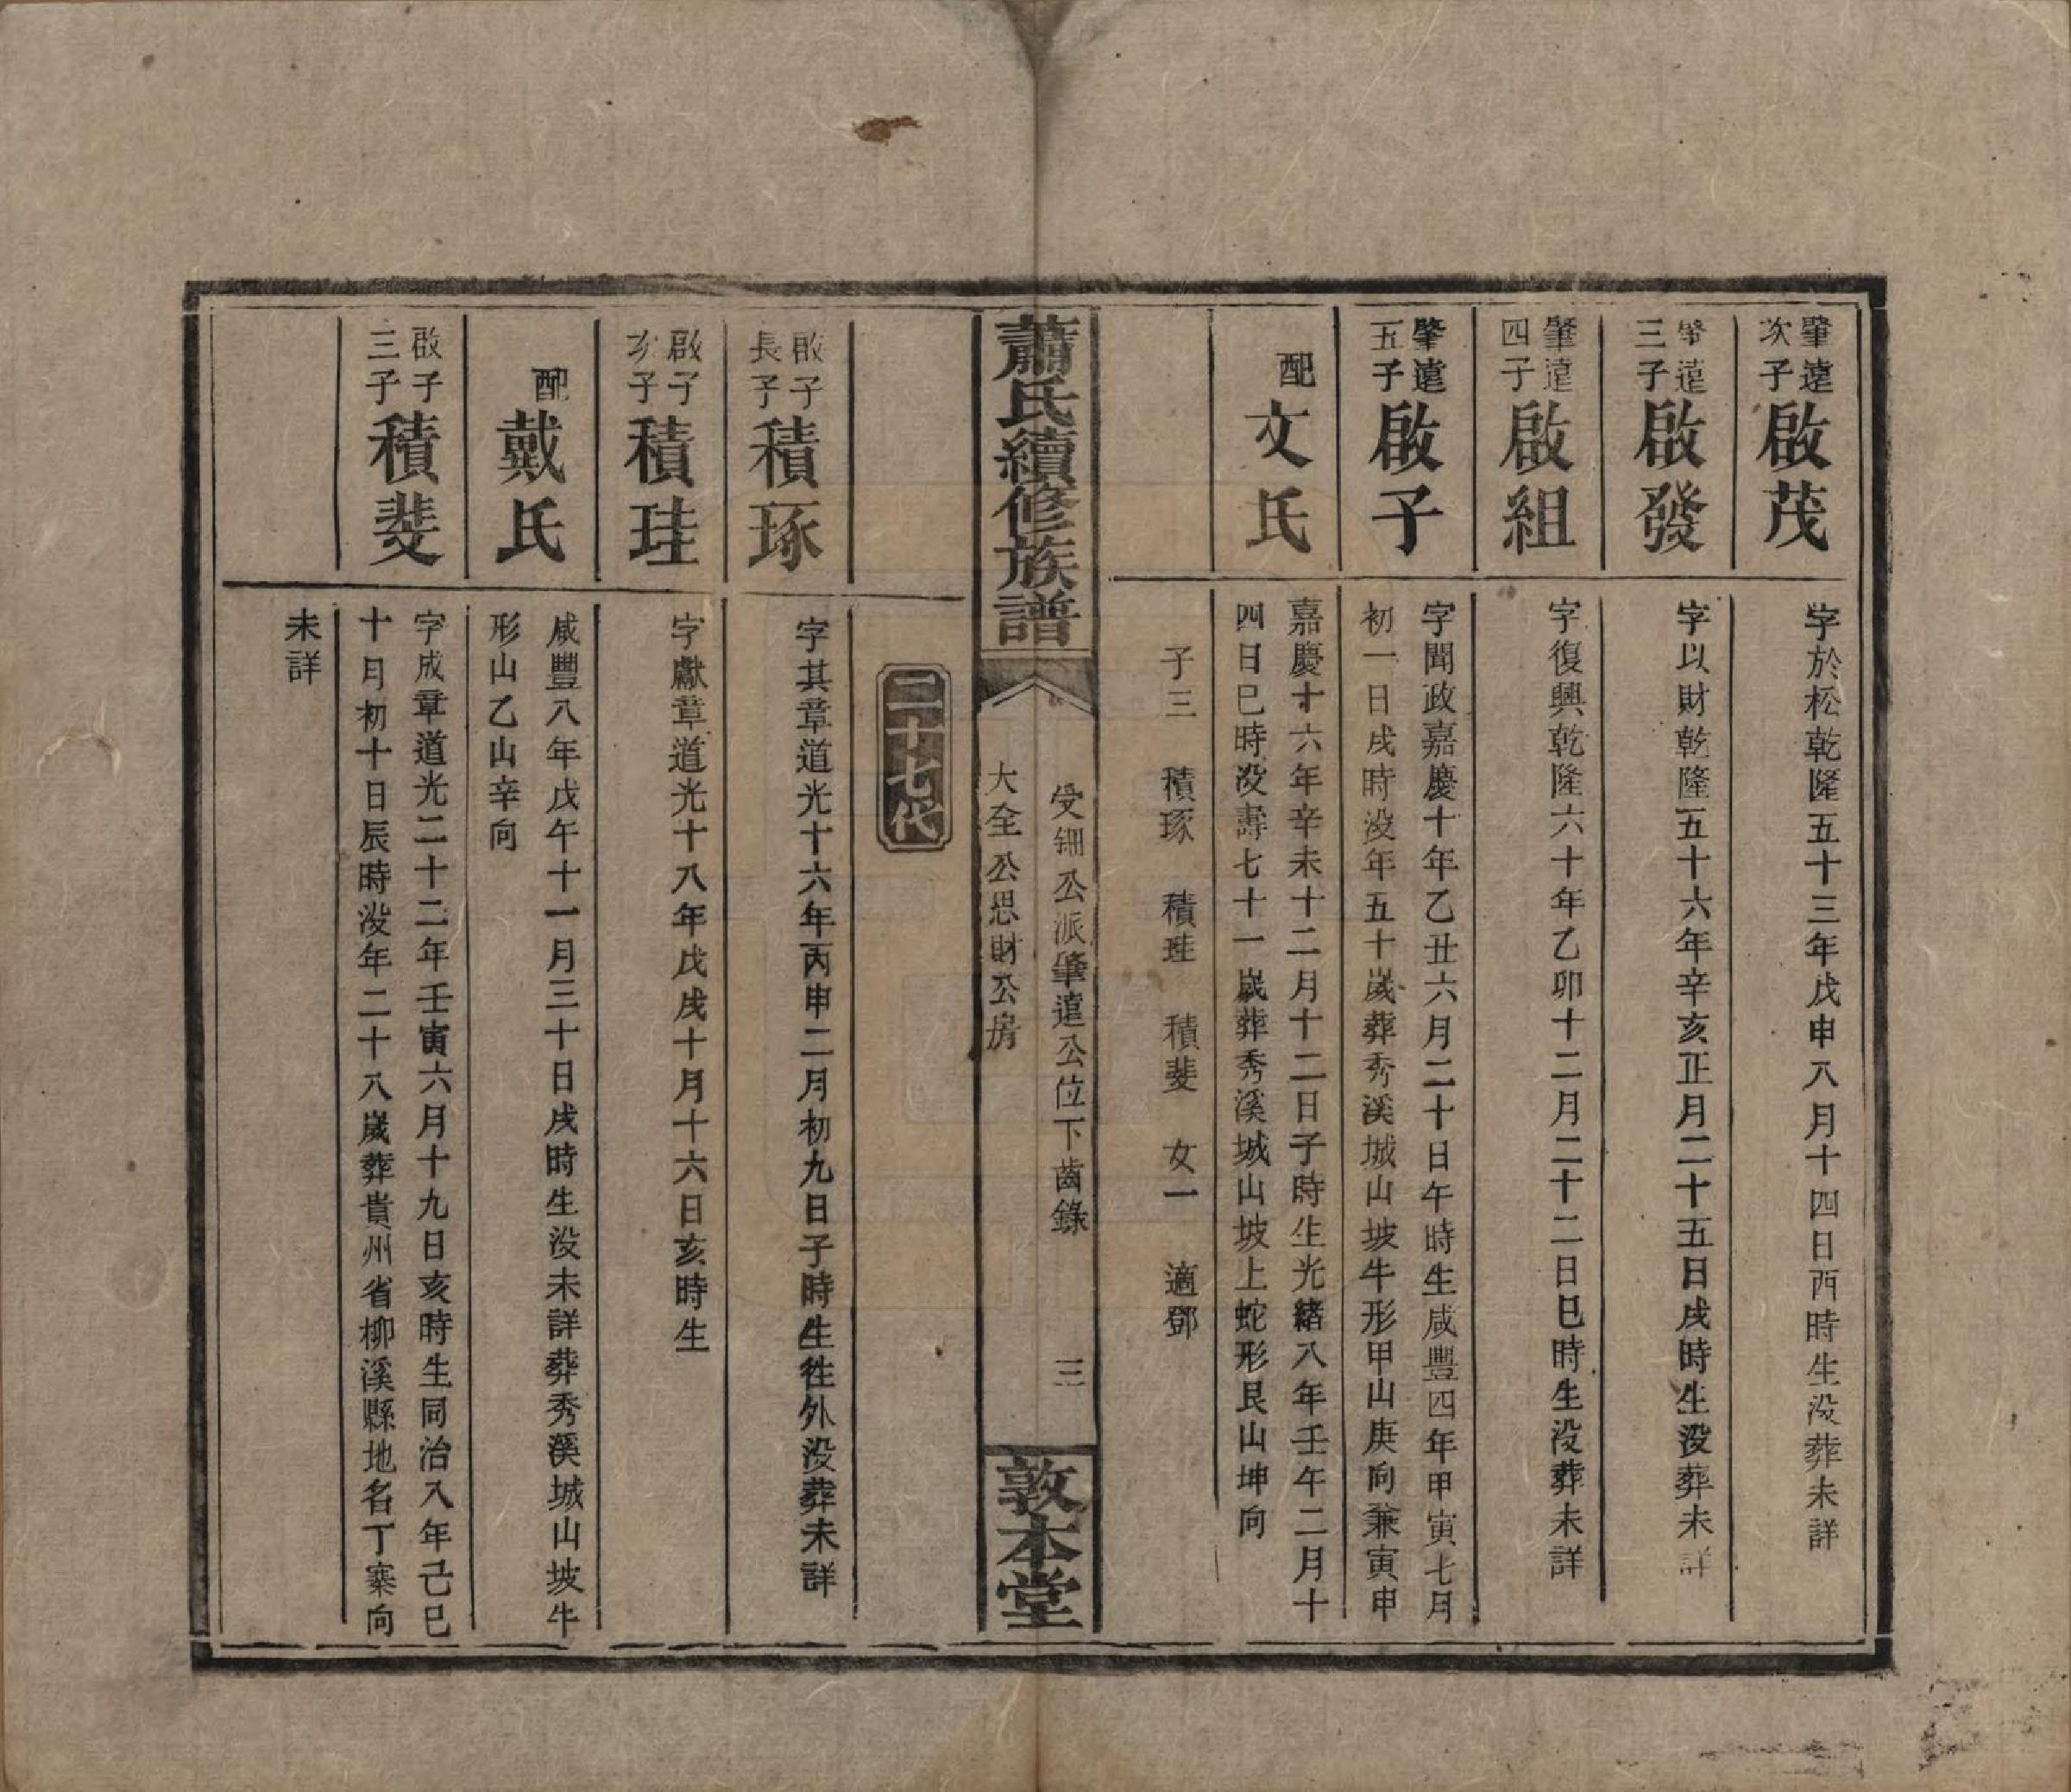 肇遠次子啟茂
字於松乾隆五十三年戊申八月十四日酉時生没葬未詳
肇遠三子啟發
字以財乾隆五十六年辛亥正月二十五日戌時生没葬未詳
肇遠四子啟組
字復興乾隆六十年乙卯十二月二十二日巳時生没葬未詳
肇遠五子啟予
字聞政嘉慶十年乙丑六月二十日午時生咸豐四年甲寅七月
初一日戌時没年五十歲葬秀溪城山坡牛形甲山庚向兼寅申
配文氏
嘉慶十六年辛未十二月十二日子時生光緒八年壬午二月十
四日巳時没壽七十一歲葬秀溪城山坡上蛇形艮山坤向
子三 積琢 積珪 積斐 女一 適鄧
蕭氏續修族譜
受鈿公派肇遠公位下齒錄 三
大全公思財公房
敦本堂
二十七代
啟予長子積琢
字其章道光十六年丙申二月初九日子時生徃外没葬未詳
啟予次子積珪
字獻章道光十八年戊戌十月十六日亥時生
配戴氏
咸豐八年戊午十一月三十日戌時生没未詳葬秀溪城山坡牛
形山乙山辛向
啟予三子積斐
字成章道光二十二年壬寅六月十九日亥時生同治八年己巳
十月初十日辰時没年二十八歲葬貴州省柳溪縣地名丁寨向
未詳